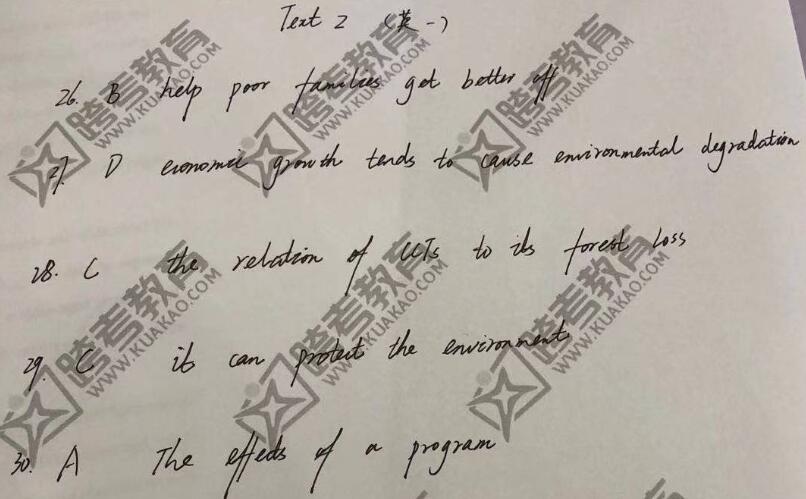 Text 2 (英一)
26. B help poor families get better off
27. D economic growth tends to cause environmental degradation
28. C the relation of CCTs to its forest loss
29. C it can protect the environment
30. A The effects of a program
跨考教育
WWW.KUAKAO.COM
跨考教育
WWW.KUAKAO.COM
跨考教育
WWW.KUAKAO.COM
跨考教育
WWW.KUAKAO.COM
跨考教育
WWW.KUAKAO.COM
跨考教育
WWW.KUAKAO.COM